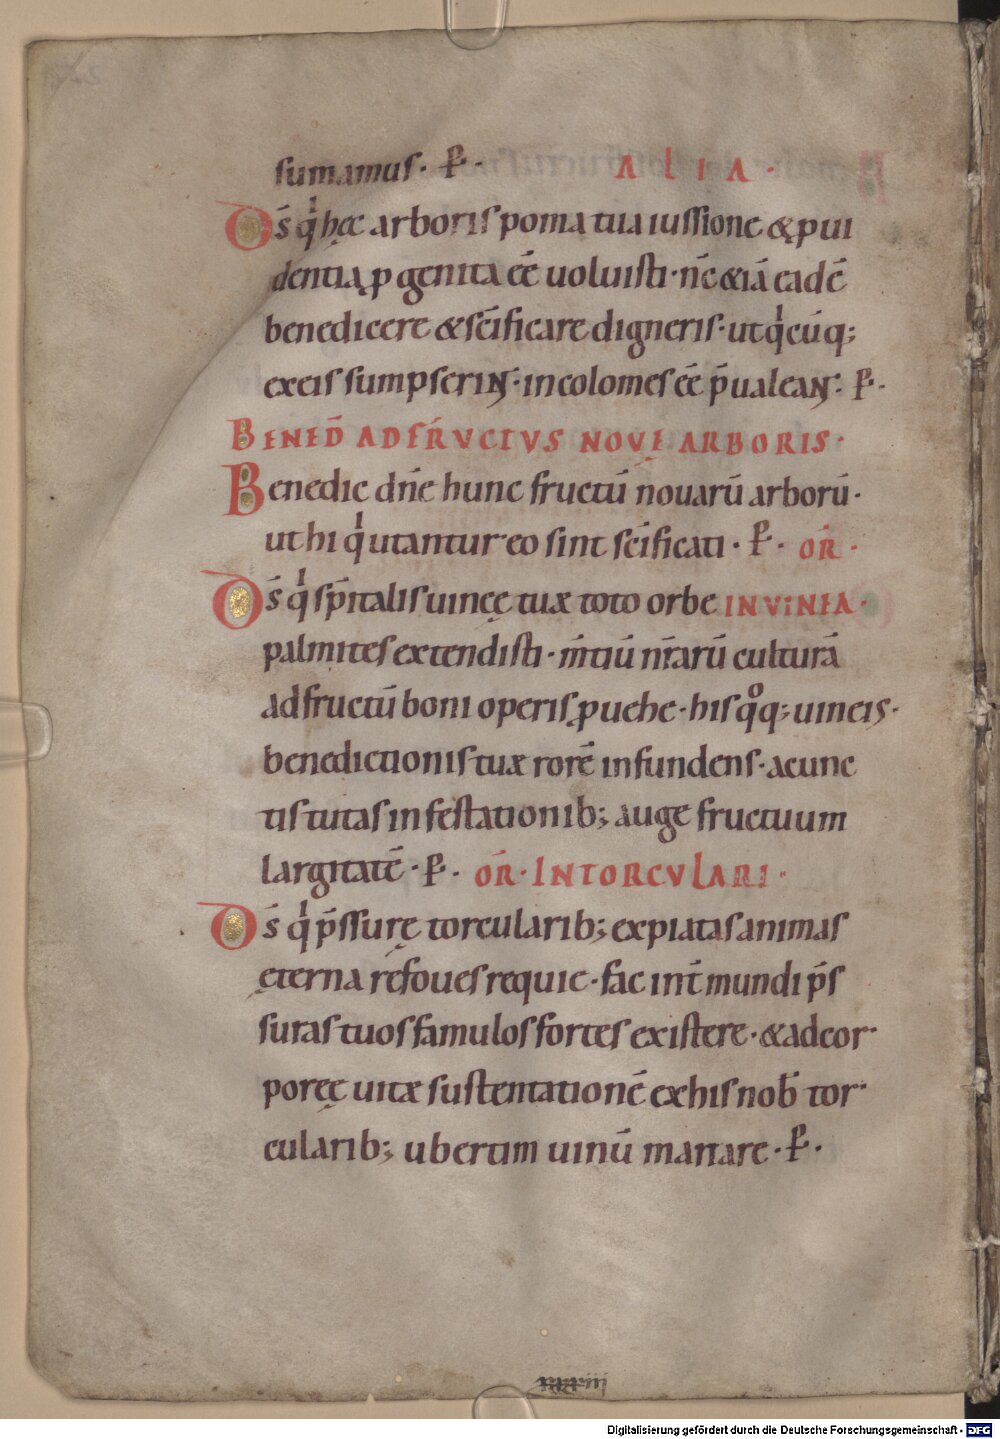 sumamus· P̄· ALIA·
D̄s q̇ hęc arboris poma tua iussione & ꝓui
dentia ꝓgenita eē uoluisti· n̄c &iā eadē
benedicere & sc̄ificare digneris· ut q̇cūq;
ex eis sumpserinꞇ· incolomes eē p̄ualeanꞇ· P̄·
BENED̄ AD FRVCTVS NOVĘ ARBORIS·
Benedic dn̄e hunc fructū nouarū arborū·
ut hi q̇ utantur eo sint sc̄ificati· P̄· OR̄·
D̄s q̇ sp̄italis uineę tuæ toto orbe IN VINEA·
palmites extendisti· m̄tiū nr̄arū culturā
ad fructū boni operis ꝓuehe· his qͦq; uineis·
benedictionis tuæ rorē infundens· a cunc
tis tutas infestationib; auge fructuum
largitatē· P̄· OR̄· IN TORCVLARI·
D̄s q̇ p̄ssurę torcularib; expiatas animas
ęterna refoues requie· fac int̄ mundi p̄s
suras tuos famulos fortes existere· & ad cor
poreę uitæ sustentationē ex his nob̄ tor
cularib; ubertim uinū manare· P̄·
Digitalisierung gefördert durch die Deutsche Forschungsgemeinschaft - DFG